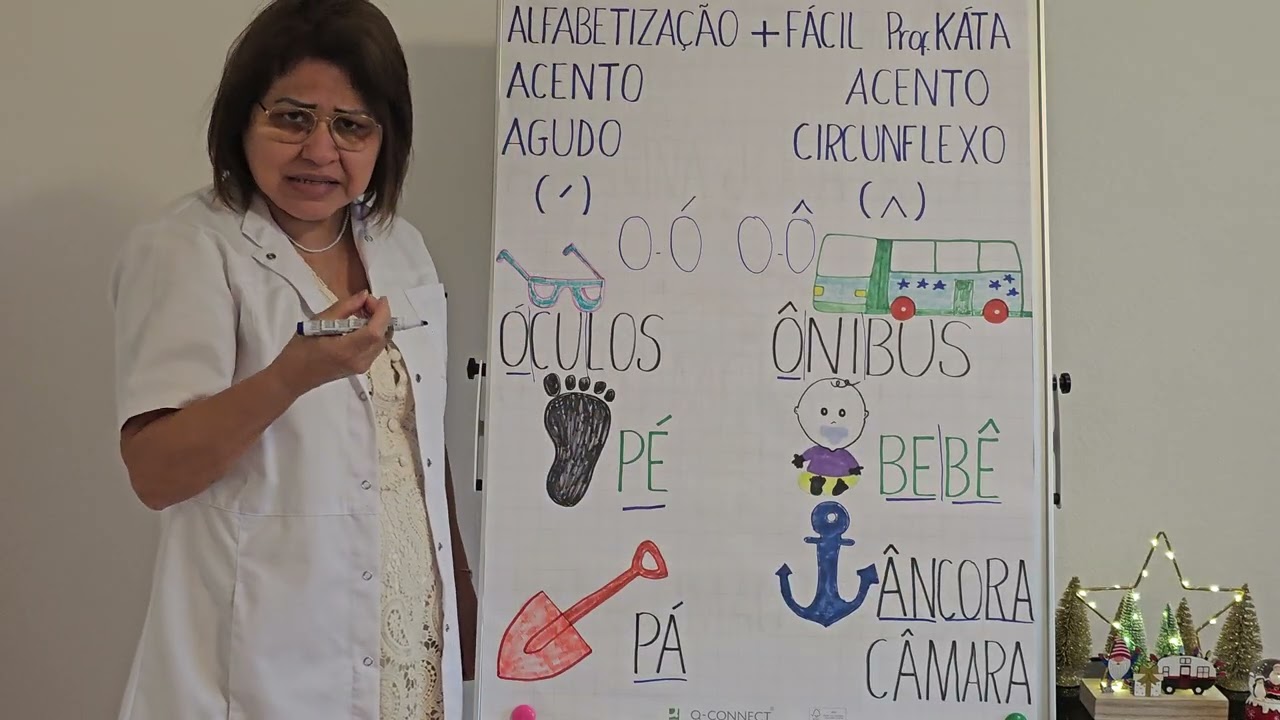 ALFABETIZAÇÃO + FÁCIL Prof. KÁTA
ACENTO
AGUDO
(´)
O-Ó
ÓCULOS
PÉ
PÁ
ACENTO
CIRCUNFLEXO
(^)
O-Ô
ÔNIBUS
BEBÊ
ÂNCORA
CÂMARA
Q-CONNECT